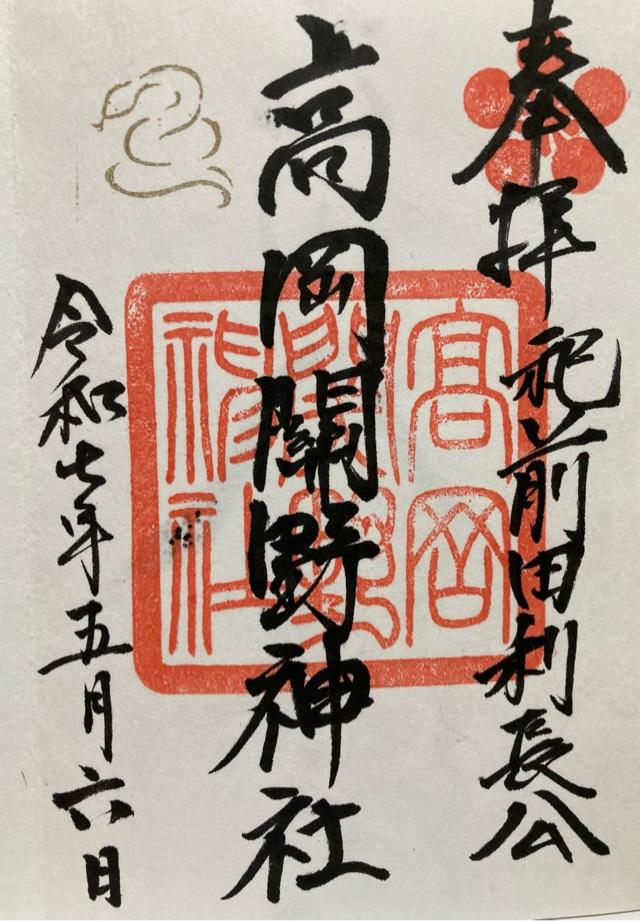 奉拝 祀前田利長公
高岡關野神社
高岡
關野
神社
令和七年五月六日